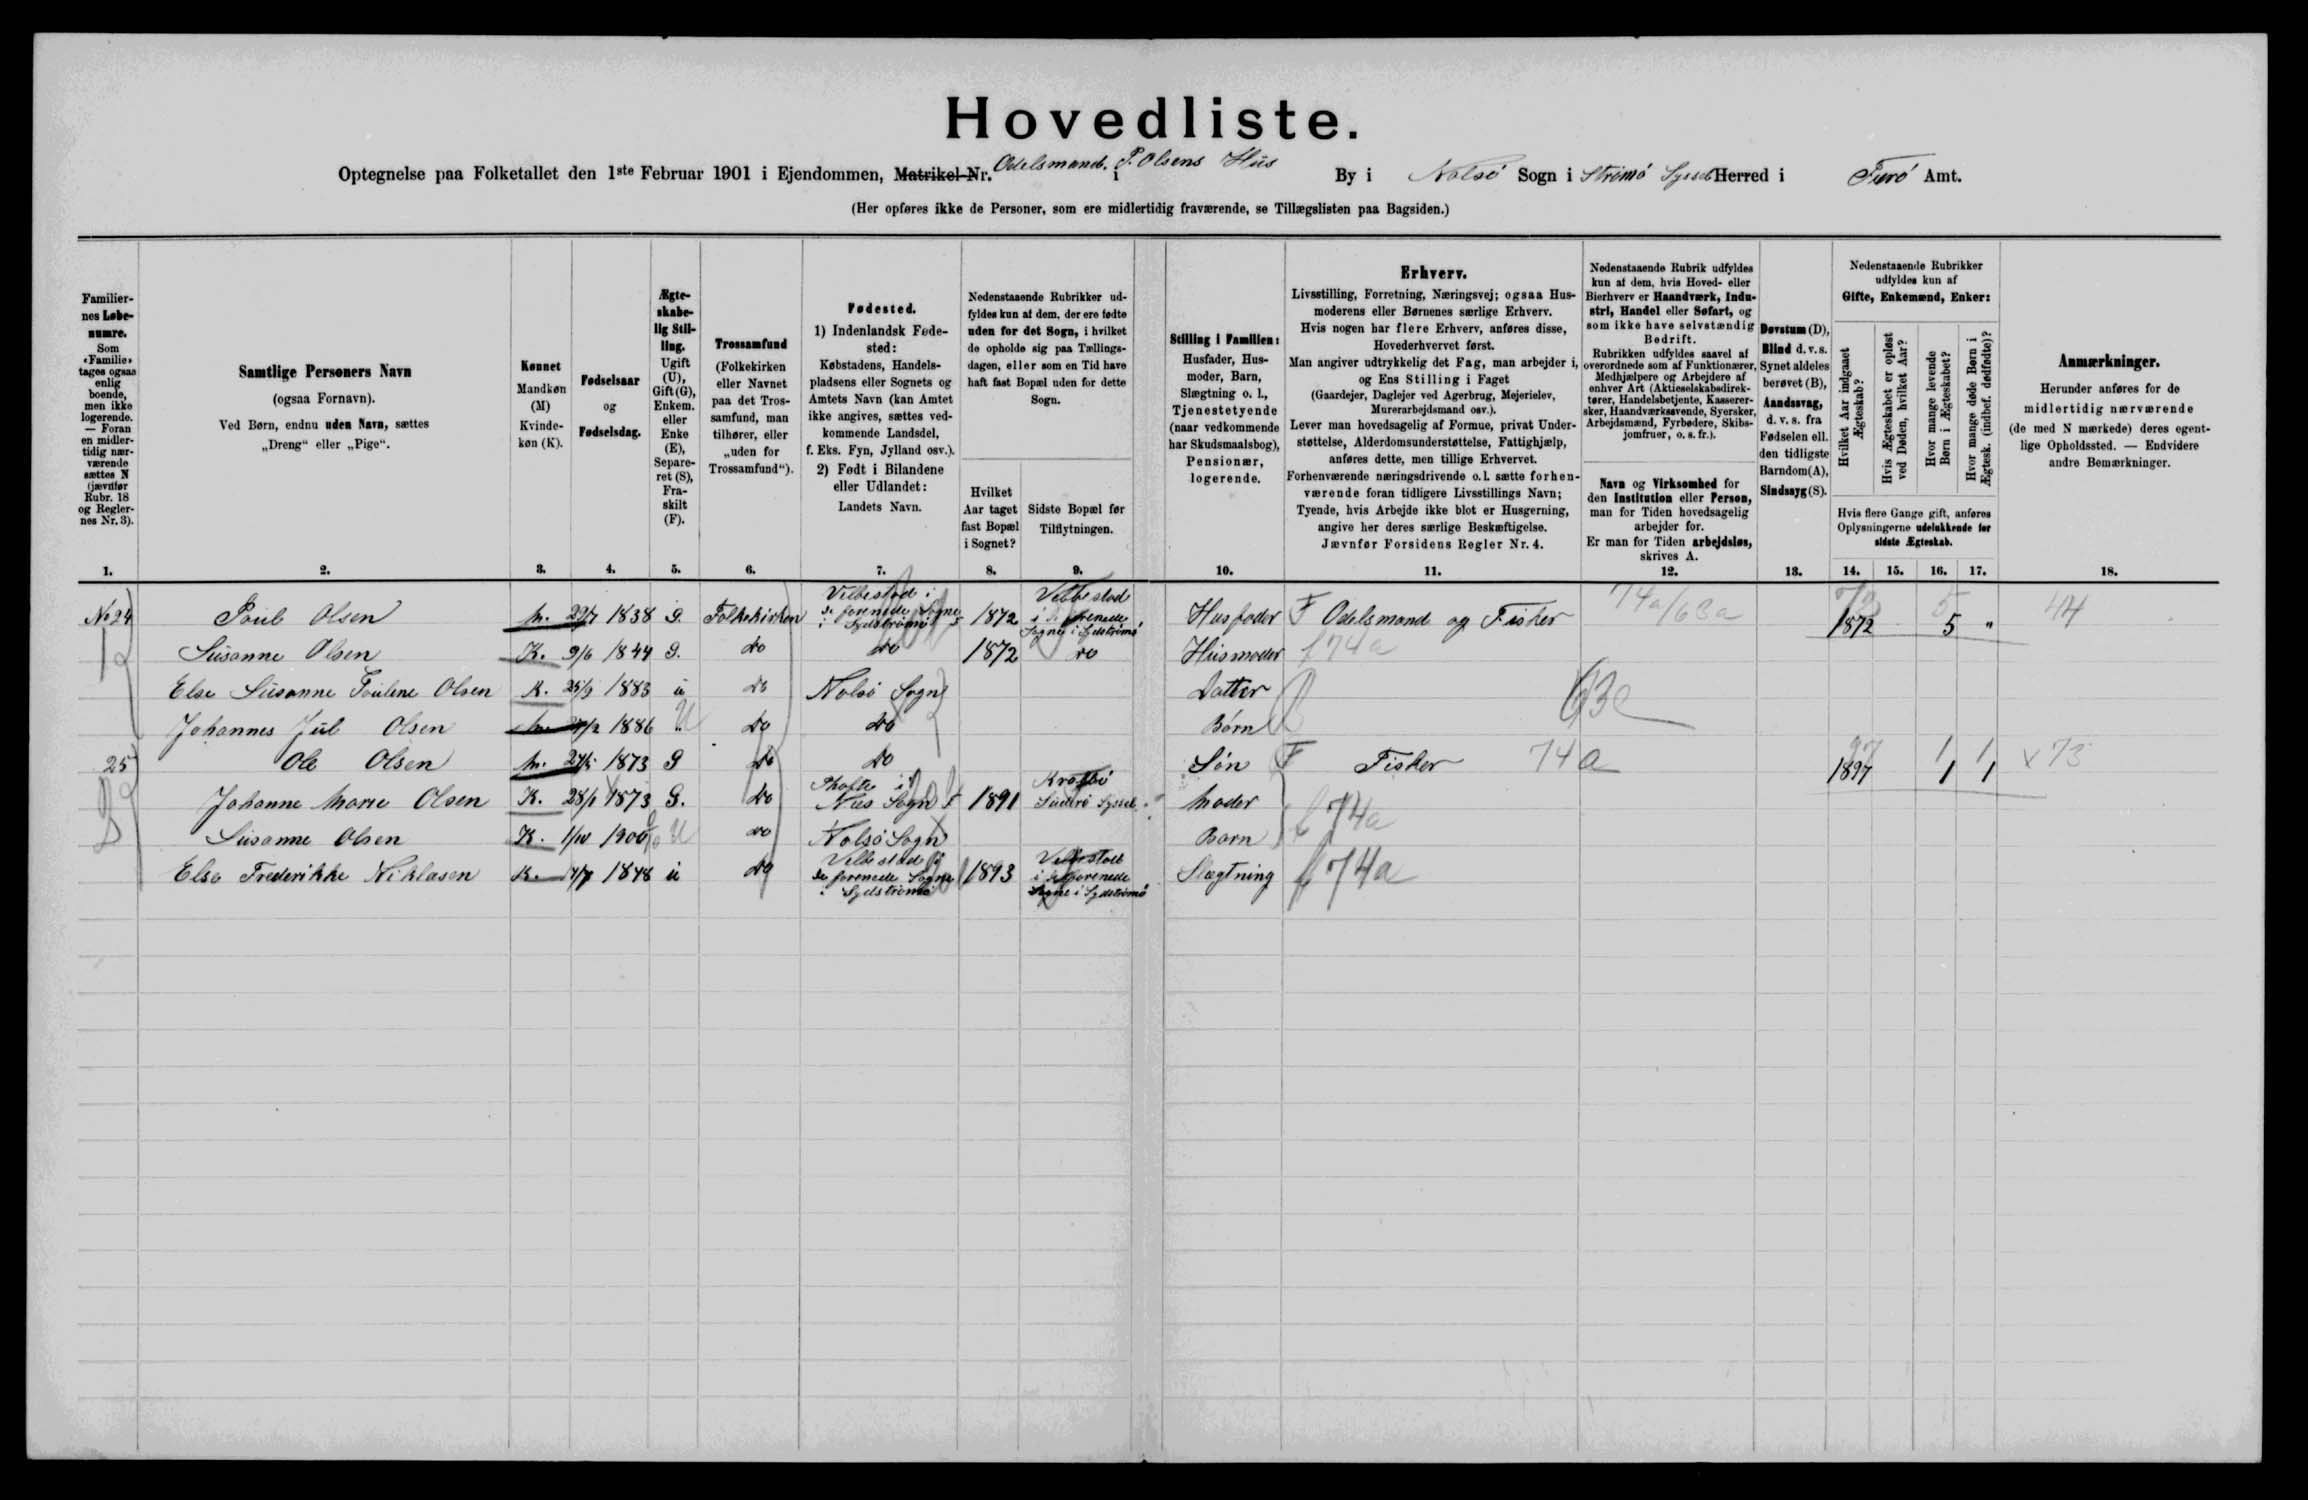 Hovedliste.
Optegnelse paa Folketallet den 1ste Februar 1901 i Ejendommen, Matrikel-Nr. Odelsmand. P. Olsens Hus i By i Nolsö Sogn i Strömö Syssel Herred i Færö Amt.
(Her opføres ikke de Personer, som ere midlertidig fraværende, se Tillægslisten paa Bagsiden.)
Familiernes Løbenumre.
Som «Familie» tages ogsaa enlig boende, men ikke logerende. — Foran en midlertidig nærværende sættes N (jævnfør Rubr. 18 og Reglernes Nr. 3).
1.
Samtlige Personers Navn
(ogsaa Fornavn).
Ved Børn, endnu uden Navn, sættes
„Dreng“ eller „Pige“.
2.
Kønnet
Mandkøn (M)
Kvindekøn (K).
3.
Fødselsaar
og
Fødselsdag.
4.
Ægteskabelig Stilling.
Ugift (U), Gift (G), Enkem. eller Enke (E), Separeret (S), Fraskilt (F).
5.
Trossamfund
(Folkekirken eller Navnet paa det Trossamfund, man tilhører, eller „uden for Trossamfund“).
6.
Fødested.
1) Indenlandsk Fødested:
Købstadens, Handelspladsens eller Sognets og Amtets Navn (kan Amtet ikke angives, sættes vedkommende Landsdel, f. Eks. Fyn, Jylland osv.).
2) Født i Bilandene eller Udlandet:
Landets Navn.
7.
Nedenstaaende Rubrikker udfyldes kun af dem, der ere fødte uden for det Sogn, i hvilket de opholde sig paa Tællingsdagen, eller som en Tid have haft fast Bopæl uden for dette Sogn.
Hvilket Aar taget fast Bopæl i Sognet?
8.
Sidste Bopæl før Tilflytningen.
9.
Stilling i Familien:
Husfader, Husmoder, Barn, Slægtning o. l., Tjenestetyende (naar vedkommende har Skudsmaalsbog), Pensionær, logerende.
10.
Erhverv.
Livsstilling, Forretning, Næringsvej; ogsaa Husmoderens eller Børnenes særlige Erhverv.
Hvis nogen har flere Erhverv, anføres disse, Hovederhvervet først.
Man angiver udtrykkelig det Fag, man arbejder i, og Ens Stilling i Faget
(Gaardejer, Daglejer ved Agerbrug, Mejerielev, Murerarbejdsmand osv.).
Lever man hovedsagelig af Formue, privat Understøttelse, Alderdomsunderstøttelse, Fattighjælp, anføres dette, men tillige Erhvervet.
Forhenværende næringsdrivende o. l. sætte forhenværende foran tidligere Livsstillings Navn;
Tyende, hvis Arbejde ikke blot er Husgerning, angive her deres særlige Beskæftigelse.
Jævnfør Forsidens Regler Nr. 4.
11.
Nedenstaaende Rubrik udfyldes kun af dem, hvis Hoved- eller Bierhverv er Haandværk, Industri, Handel eller Søfart, og som ikke have selvstændig Bedrift.
Rubrikken udfyldes saavel af overordnede som af Funktionærer, Medhjælpere og Arbejdere af enhver Art (Aktieselskabsdirektører, Handelsbetjente, Kasserersker, Haandværkssvende, Syersker, Arbejdsmænd, Fyrbødere, Skibsjomfruer, o. s. fr.).
Navn og Virksomhed for den Institution eller Person, man for Tiden hovedsagelig arbejder for.
Er man for Tiden arbejdsløs, skrives A.
12.
Døvstum (D), Blind d. v. s. Synet aldeles berøvet (B), Aandssvag, d. v. s. fra Fødselen ell. den tidligste Barndom (A), Sindssyg (S).
13.
Nedenstaaende Rubrikker udfyldes kun af
Gifte, Enkemænd, Enker:
Hvilket Aar indgaaet Ægteskab?
Hvis Ægteskabet er opløst ved Døden, hvilket Aar?
Hvor mange levende Børn i Ægteskabet?
Hvor mange døde Børn i Ægtesk. (indbef. dødfødte)?
Hvis flere Gange gift, anføres Oplysningerne udelukkende for sidste Ægteskab.
14. 15. 16. 17.
Anmærkninger.
Herunder anføres for de midlertidig nærværende (de med N mærkede) deres egentlige Opholdssted. — Endvidere andre Bemærkninger.
18.
No 24 Poul Olsen M. 29/7 1838 G. Folkekirken Velbestad i de forenede Sogne i Sydströmö 1872 Velbestad i de forenede Sogne i Sydströmö Husfader F Odelsmand og Fisker 74a/63a 1872 5 " 44
Susanne Olsen K. 9/6 1844 G. do do 1872 do Husmoder f 74a
Else Susanne Pouline Olsen K. 25/9 1883 u do Nolsö Sogn Datter
Johannes Juul Olsen M. 1886 " U do do Börn 63e
25 Ole Olsen M. 27/5 1873 G do do Sön F Fisker 74a 1897 1 1 x 73
Johanne Marie Olsen K. 28/1 1873 G. do Næs Sogn 1891 Suderö Syssel Moder f 74a
Susanne Olsen K. 1/10 1900 U do Nolsö Sogn Barn
Else Frederikke Niklasen K. 1848 u do Velbestad i de forenede Sogne i Sydströmö 1893 Velbestad i de forenede Sogne i Sydströmö Slægtning f 74a